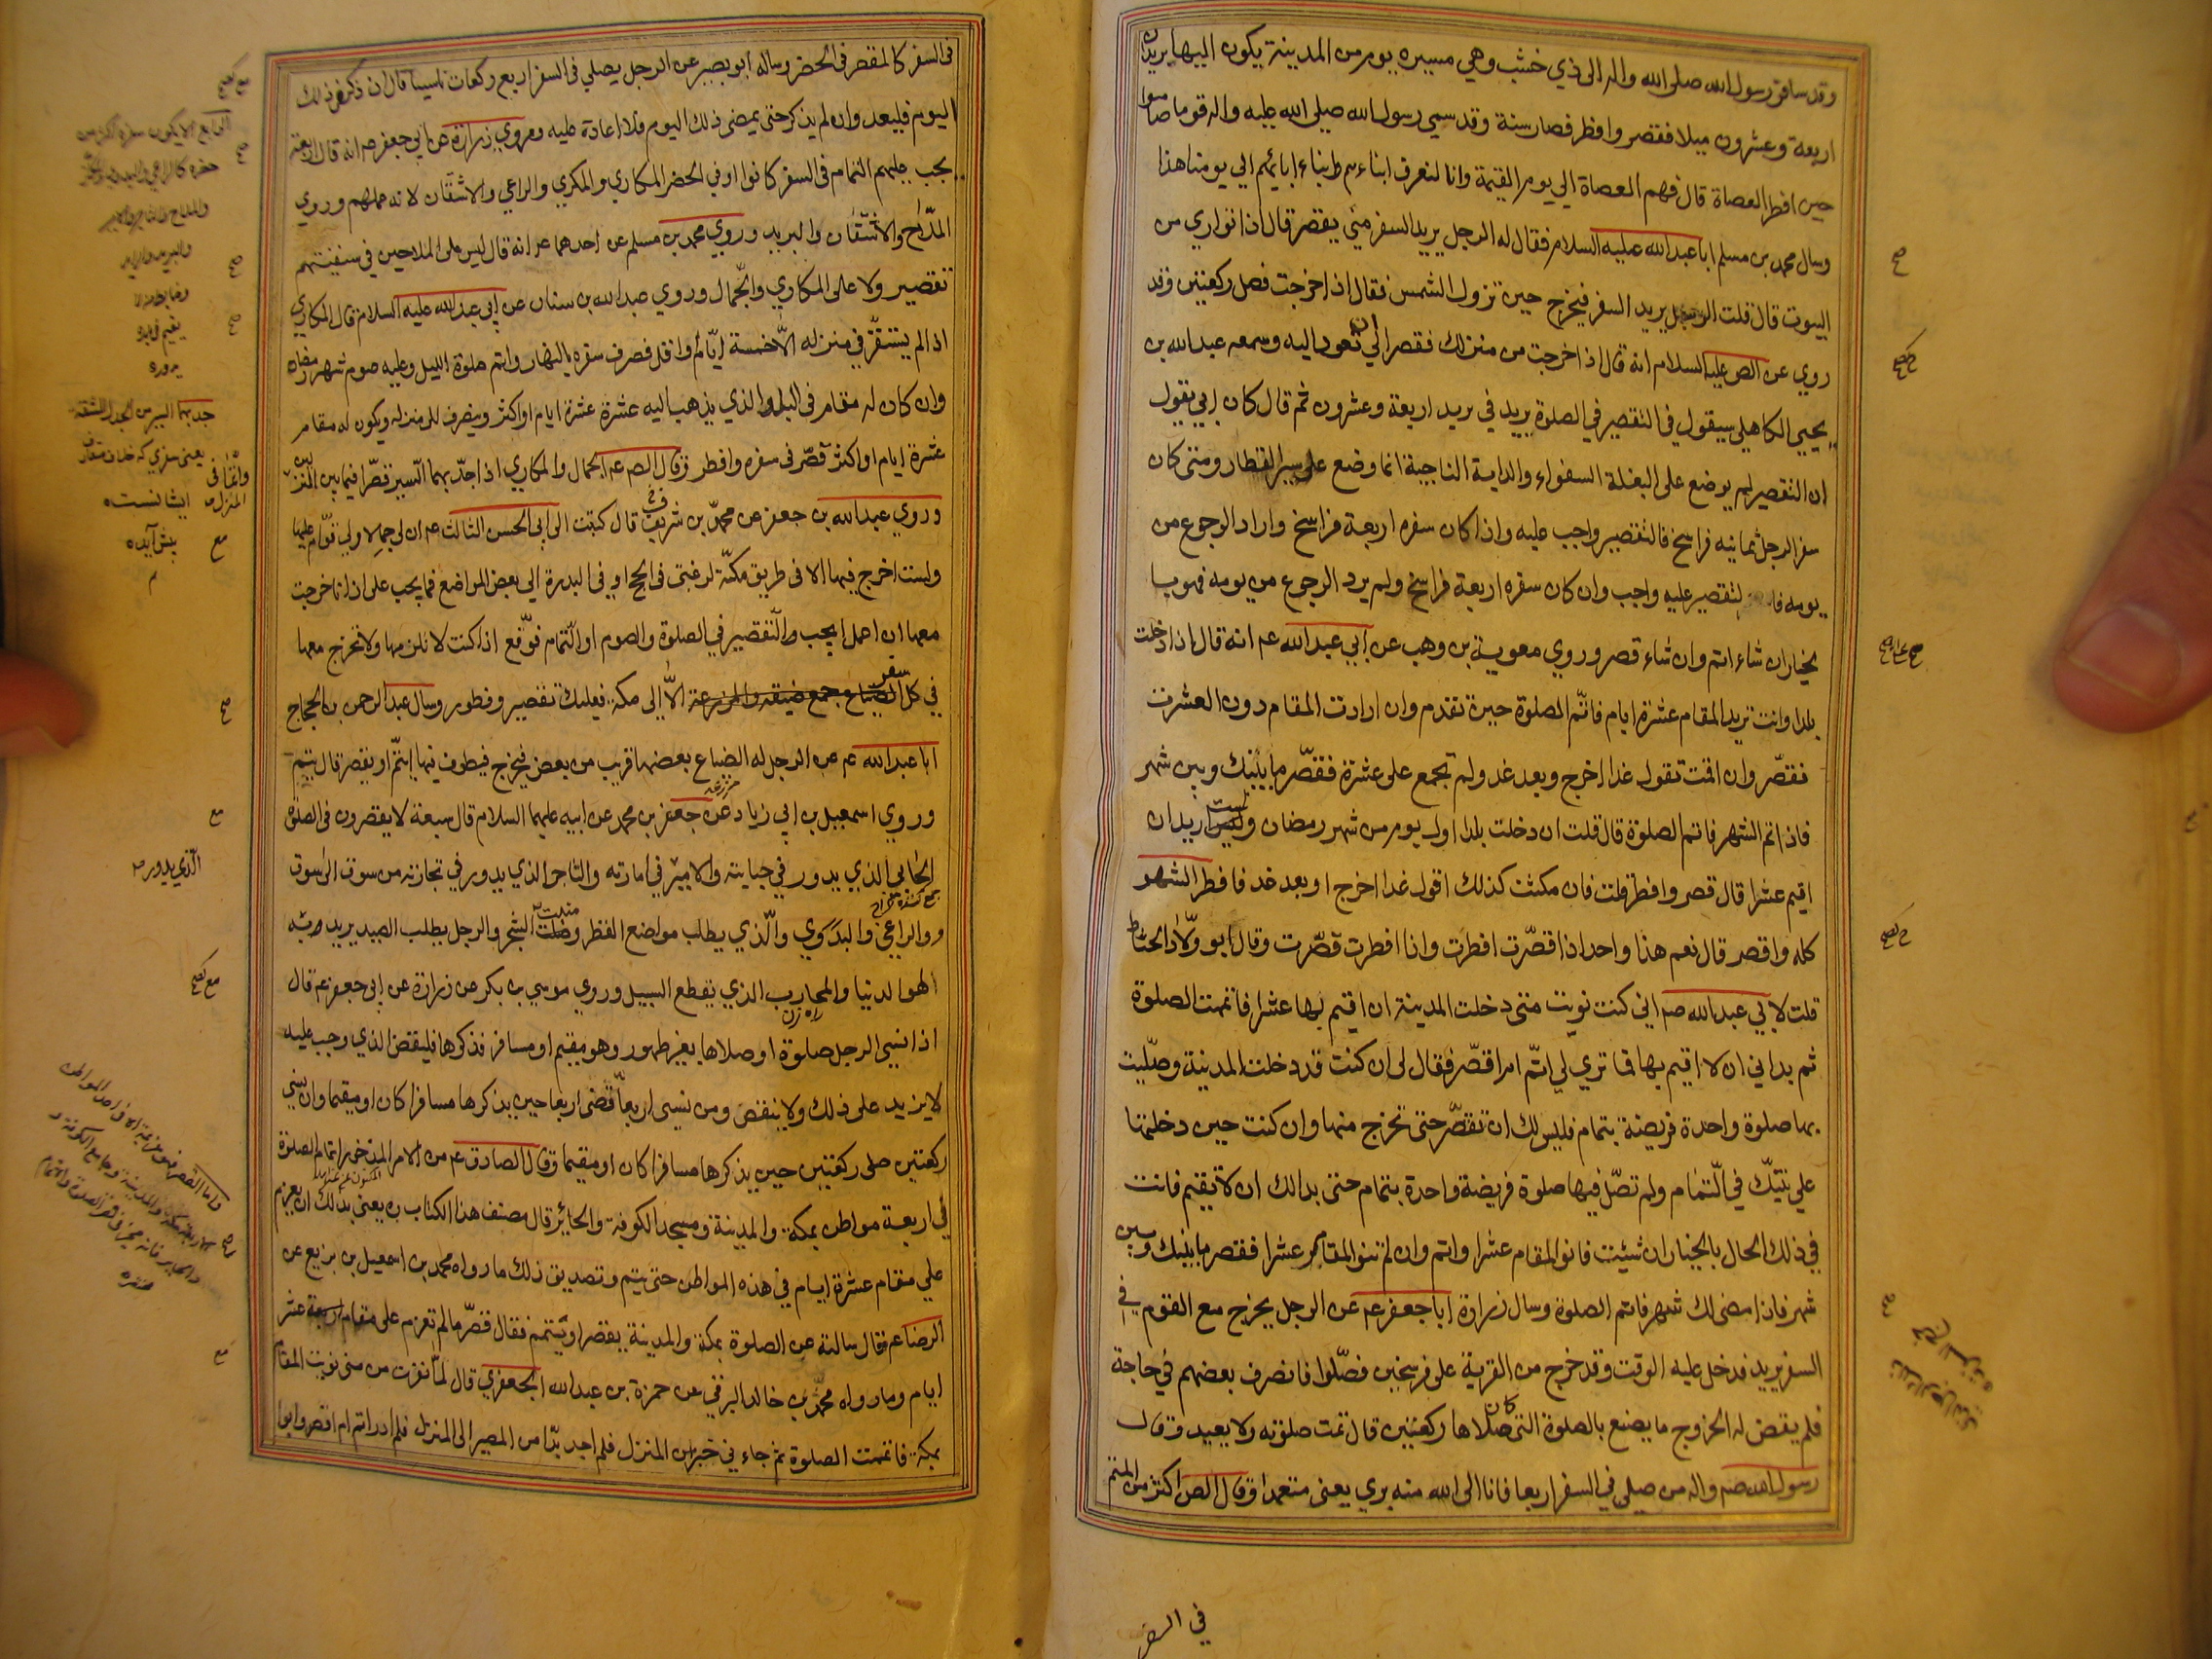 وقد سافر رسول الله صلى الله واله الى ذي خشب وهي مسيره يوم من المدينة يكون اليها بريدان
اربعة وعشرون ميلا فقصر وافطر فصار سنة وقد سمي رسول الله صلى الله عليه واله قوما صاموا
حين افطر العصاة قال فهم العصاة الي يوم القيمة وانا لنعرف ابناءهم وابناء ابنائهم الي يومنا هذا
وسال محمد بن مسلم ابا عبد الله عليه السلام فقال له الرجل يريد السفر متي يقصر قال اذا تواري من
البيوت قال قلت الرجل يريد السفر فيخرج حين تزول الشمس فقال اذا خرجت فصل ركعتين وقد
روي عن الص عليه السلام انه قال اذا خرجت من منزلك فقصر الي ان تعود اليه وسمعه عبد الله بن
يحيي الكاهلي سيقول في التقصير في الصلوة بريد في بريد اربعة وعشرون ثم قال كان ابي يقول
ان التقصير لم يوضع على البغلة السفواء والدابة الناجية انما وضع على سير القطار ومتى كان
سفر الرجل ثمانيه فراسخ فالتقصير واجب عليه واذا كان سفره اربعة فراسخ واراد الرجوع من
يومه فا لتقصير عليه واجب وان كان سفره اربعة فراسخ ولم يرد الرجوع من يومه فهو با
لخيار ان شاء اتم وان شاء قصر وروي معوية بن وهب عن ابي عبد الله عم انه قال اذا دخلت
بلدا وانت تريد المقام عشرة ايام فاتم الصلوة حين تقدم وان اردت المقام دون العشرت
فقصر وان اقمت تقول غدا اخرج وبعد غد ولم تجمع على عشرة فقصر ما بينك وبين شهر
فاذا تم الشهر فاتم الصلوة قال قلت ان دخلت بلدا اول يوم من شهر رمضان ولست اريد ان
اقيم عشرا قال قصر وافطر قلت فان مكثت كذلك اقول غدا اخرج او بعد غد فافطر الشهر
كله واقصر قال نعم هذا واحد اذا قصرت افطرت واذا افطرت قصرت وقال ابو ولاد الحناط
قلت لابي عبد الله عم اني كنت نويت متى دخلت المدينة ان اقيم بها عشرا فاتممت الصلوة
ثم بدا لي ان لا اقيم بها فما تري لي اتم ام اقصر فقال لى ان كنت قد دخلت المدينة وصليت
بها صلوة واحدة فريضة بتمام فليس لك ان تقصر حتى تخرج منها وان كنت حين دخلتها
علي نيتك في التمام ولم تصل فيها صلوة فريضة واحدة بتمام حتى بدا لك ان لا تقيم فانت
في ذلك الحال بالخيار ان شئت فانو المقام عشرا واتم وان لم تنو المقام عشرا فقصر ما بينك وبين
شهر فاذا مضى لك شهر فاتم الصلوة وسال زرارة ابا جعفر عم عن الرجل يخرج مع القوم في
السفر يريد فدخل عليه الوقت وقد خرج من القرية على فرسخين فصلوا فانصرف بعضهم في حاجة
فلم يقض له الخروج ما يصنع بالصلوة التي كان صلاها ركعتين قال تمت صلوته ولا يعيد وقال
رسول الله صم واله من صلى في السفر اربعا فانا الى الله منه بري يعنى متعمدا وقال الص اكثر من المتم
في السفر
في السفر كالمقصر في الحضر وساله ابو بصير عن الرجل يصلي في السفر اربع ركعات ناسيا قال ان ذكر في ذلك
اليوم فليعد وان لم يذكر حتى يمضى ذلك اليوم فلا اعادة عليه وروي زرارة عن ابي جعفر عم انه قال اربعة
يجب عليهم التمام في السفر كانوا او في الحضر المكاري والمكري والراعي والاشتقان لانه عملهم وروي
الملاح والاشتقان والبريد وروي محمد بن مسلم عن احدهما عم انه قال ليس على الملاحين في سفينتهم
تقصير ولا على المكاري والجمال وروي عبد الله بن سنان عن ابي عبد الله عليه السلام قال المكاري
اذا لم يستقر في منزله الا خمسة ايام او اقل قصر في سفره بالنهار واتم صلوة الليل وعليه صوم شهر رمضان
وان كان له مقام في البلد الذي يذهب اليه عشرة عشرة ايام او اكثر وينصرف الى منزله ويكون له مقام
عشرة ايام او اكثر قصر في سفره وافطر وقال الص عم الجمال والمكاري اذا جد بهما السير قصرا فيما بين المنزلين
وروي عبد الله بن جعفر عن محمد بن شريف قال كتبت الى ابي الحسن الثالث عم ان لي جمالا ولي قوام عليها
ولست اخرج فيها الا في طريق مكة لرغبتي في الحج او في الندرة الي بعض المواضع فما يجب على اذا انا خرجت
معها ان اعمل ايجب التقصير في الصلوة والصوم او التمام فوقع اذا كنت لا تلزمها ولا تخرج معها
في كل سفر الا الى مكة فعليك تقصير وفطور وسال عبد الرحمن بن الحجاج
ابا عبد الله عم عن الرجل له الضياع بعضها قريب من بعض فيخرج فيطوف فيها ايتم او يقصر قال يتم
وروي اسمعيل بن ابي زياد عن جعفر بن محمد عن ابيه عليهما السلام قال سبعة لا يقصرون في الصلوة
الجابي الذي يدور في جبايته والامير في امارته والتاجر الذي يدور في تجارته من سوق الى سوق
والراعي والبدوي والذي يطلب مواضع القطر ومنبت الشجر والرجل يطلب الصيد يريد به
لهو الدنيا والمحارب الذي يقطع السبيل وروي موسي بن بكر عن زرارة عن ابي جعفر عم قال
اذا نسي الرجل صلوة او صلاها بغير طهور وهو مقيم او مسافر فذكرها فليقض الذي وجب عليه
لا يزيد على ذلك ولا ينقص ومن نسى اربعا قضى اربعا حين يذكرها مسافرا كان او مقيما وان نسي
ركعتين صلى ركعتين حين يذكرها مسافرا كان او مقيما وقال الصادق عم من الامر المذخور اتمام الصلوة
في اربعة مواطن بمكة والمدينة ومسجد الكوفة والحائر قال مصنف هذا الكتاب يعنى بذلك ان يعزم
علي مقام عشرة ايام في هذه المواطن حتى يتم وتصديق ذلك ما رواه محمد بن اسمعيل بن بزيع عن
الرضا عم قال سالته عن الصلوة بمكة والمدينة يقصر او يتمم فقال قصر ما لم تعزم على مقام عشر
ايام وما رواه محمد بن خالد البرقي عن حمزة بن عبد الله الجعفري قال لما نفرت من منى نويت المقام
بمكة فاتممت الصلوة ثم جاء ني خبر من المنزل فلم اجد بدا من المصير الى المنزل فلم ادر اتم ام اقصر وابو
الذي يدور